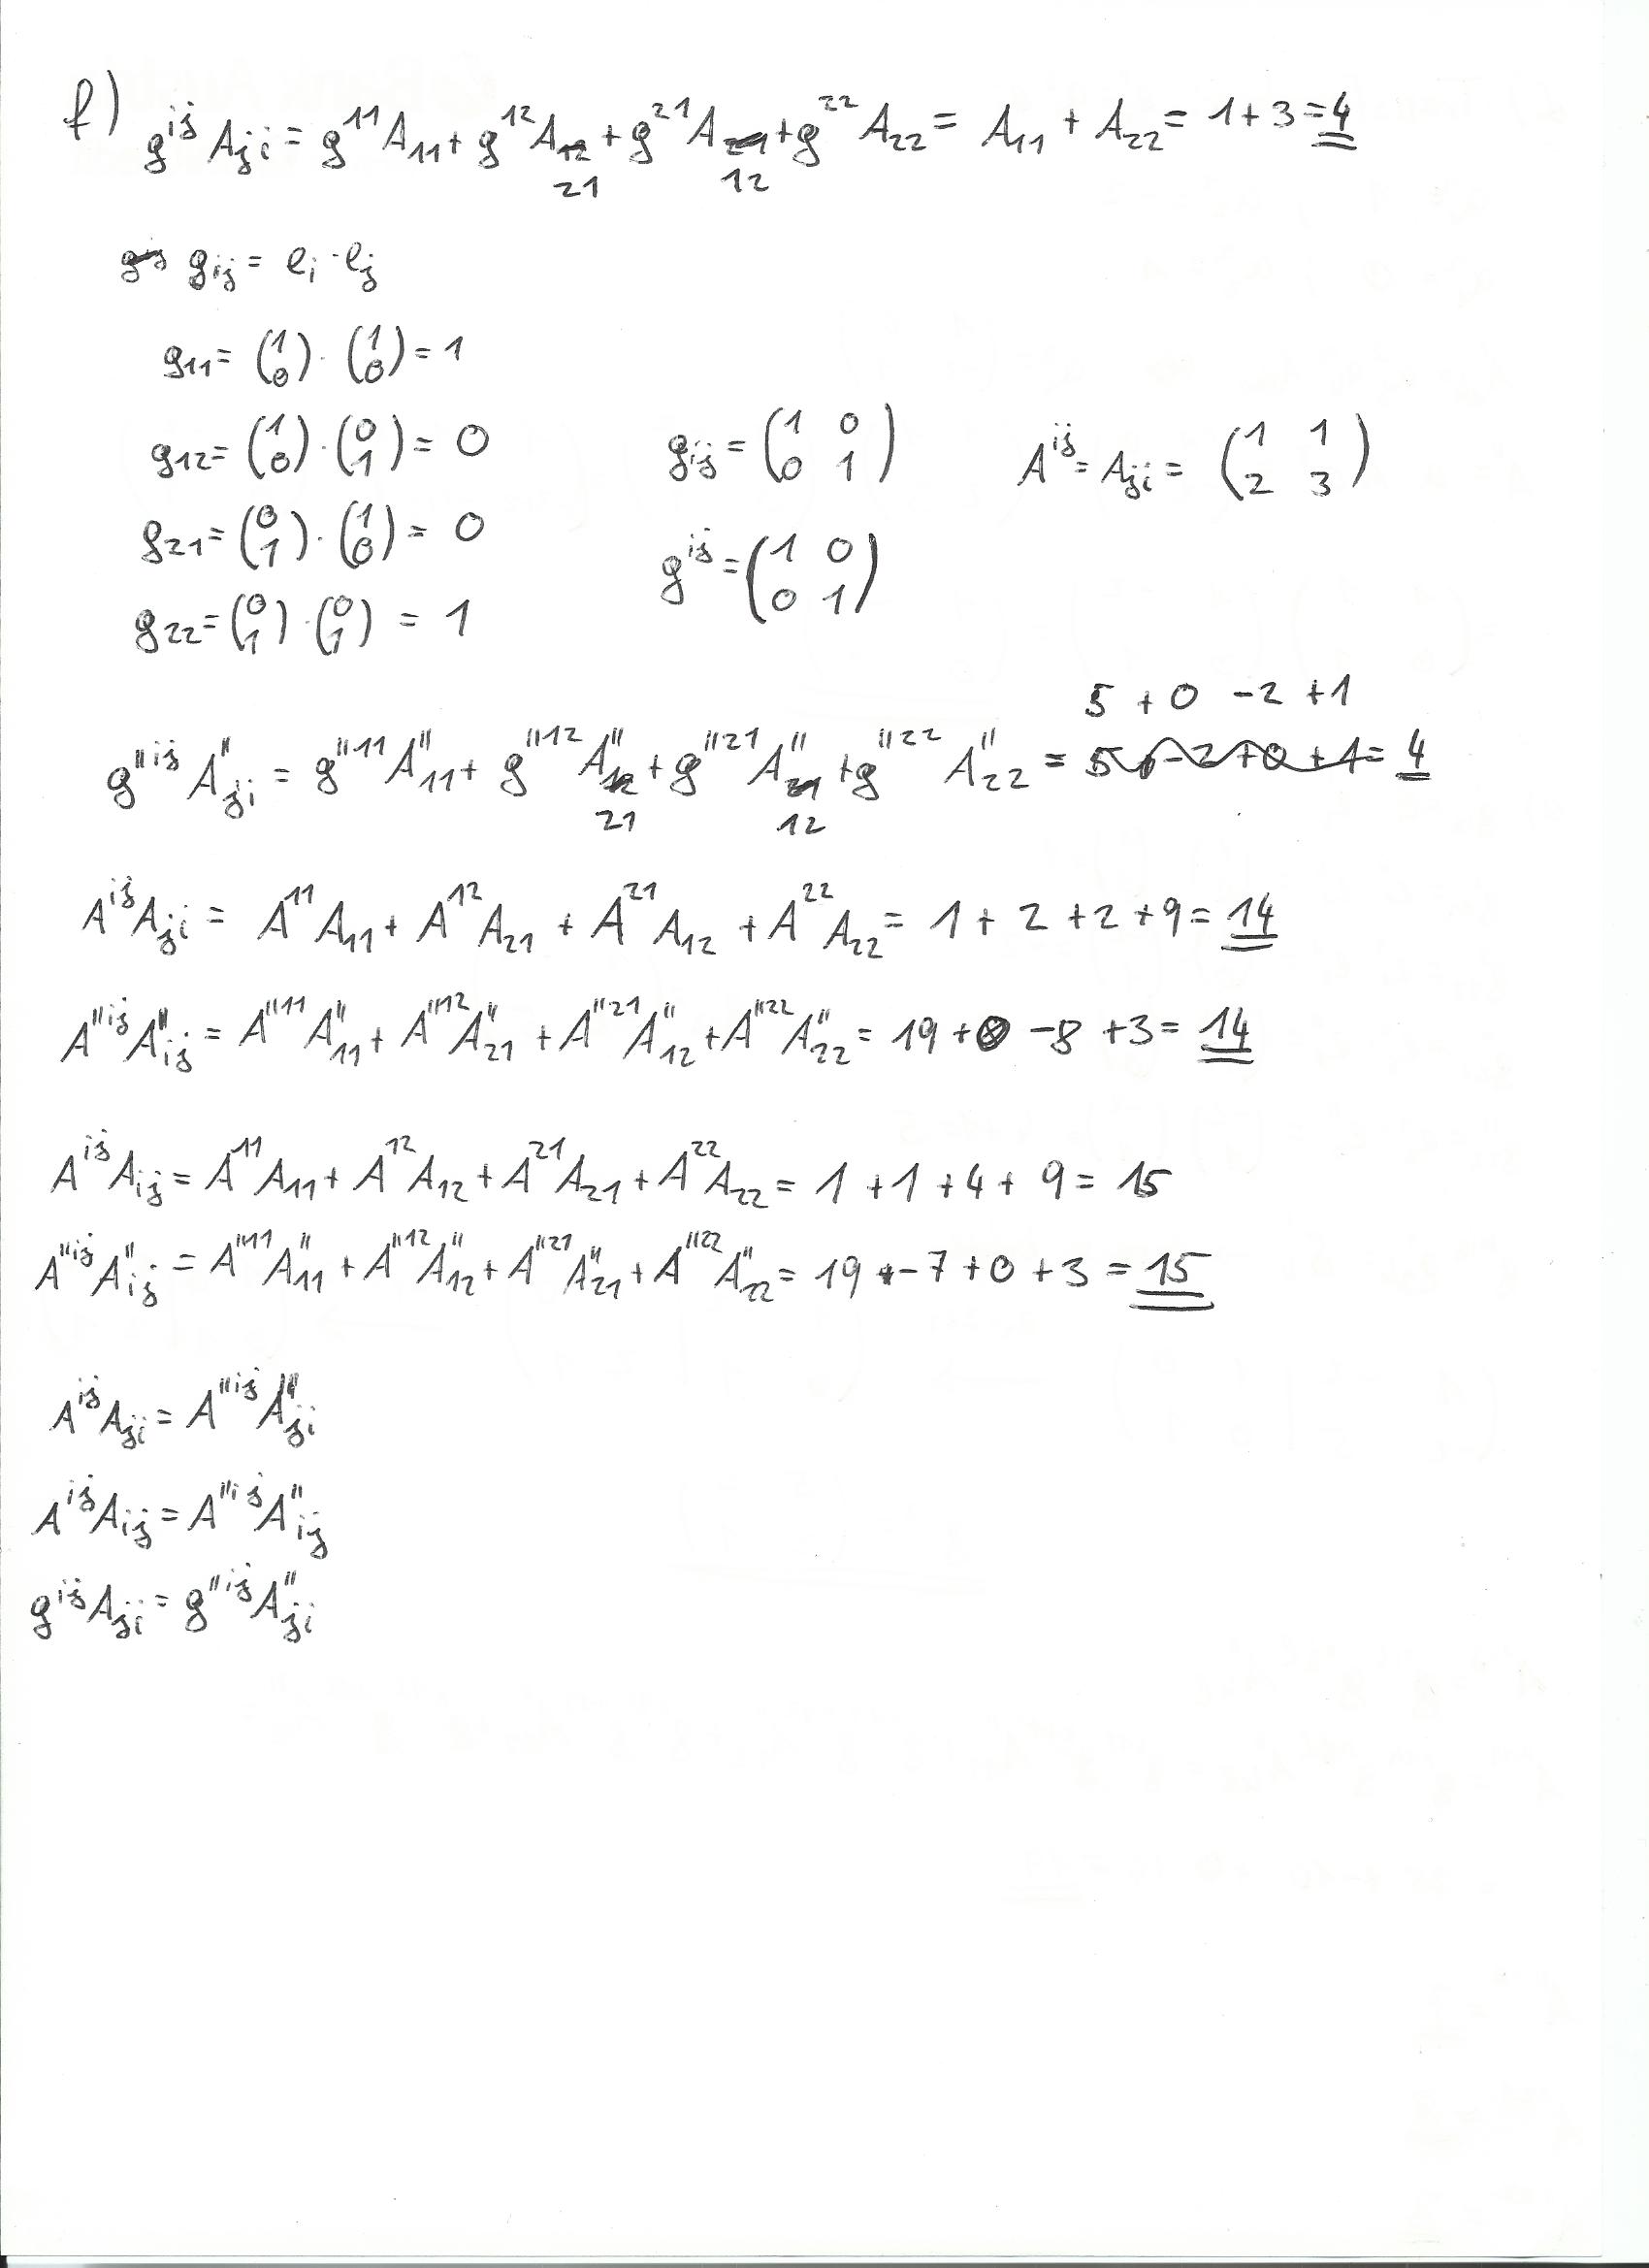 f) g^{ij} A_{ji} = g^{11}A_{11} + g^{12}A_{21} + g^{21}A_{12} + g^{22}A_{22} = A_{11} + A_{22} = 1+3 = 4
g_{ij} = e_i · e_j
g_{11} = (1 0) · (1 0) = 1
g_{12} = (1 0) · (0 1) = 0
g_{ij} = (1 0 0 1)
A^{ij} = A_{ji} = (1 1 2 3)
g_{21} = (0 1) · (1 0) = 0
g^{ij} = (1 0 0 1)
g_{22} = (0 1) · (0 1) = 1
5 + 0 -2 +1
g''^{ij} A''_{ji} = g''^{11}A''_{11} + g''^{12}A''_{21} + g''^{21}A''_{12} + g''^{22}A''_{22} = 5 -2+0+1 = 4
A^{ij}A_{ji} = A^{11}A_{11} + A^{12}A_{21} + A^{21}A_{12} + A^{22}A_{22} = 1 + 2 + 2 + 9 = 14
A''^{ij}A''_{ij} = A''^{11}A''_{11} + A''^{12}A''_{21} + A''^{21}A''_{12} + A''^{22}A''_{22} = 19 + 0 -8 +3 = 14
A^{ij}A_{ij} = A^{11}A_{11} + A^{12}A_{12} + A^{21}A_{21} + A^{22}A_{22} = 1 + 1 + 4 + 9 = 15
A''^{ij}A''_{ij} = A''^{11}A''_{11} + A''^{12}A''_{12} + A''^{21}A''_{21} + A''^{22}A''_{22} = 19 + -7 + 0 + 3 = 15
A^{ij}A_{ji} = A''^{ij}A''_{ji}
A^{ij}A_{ij} = A''^{ij}A''_{ij}
g^{ij}A_{ji} = g''^{ij}A''_{ji}